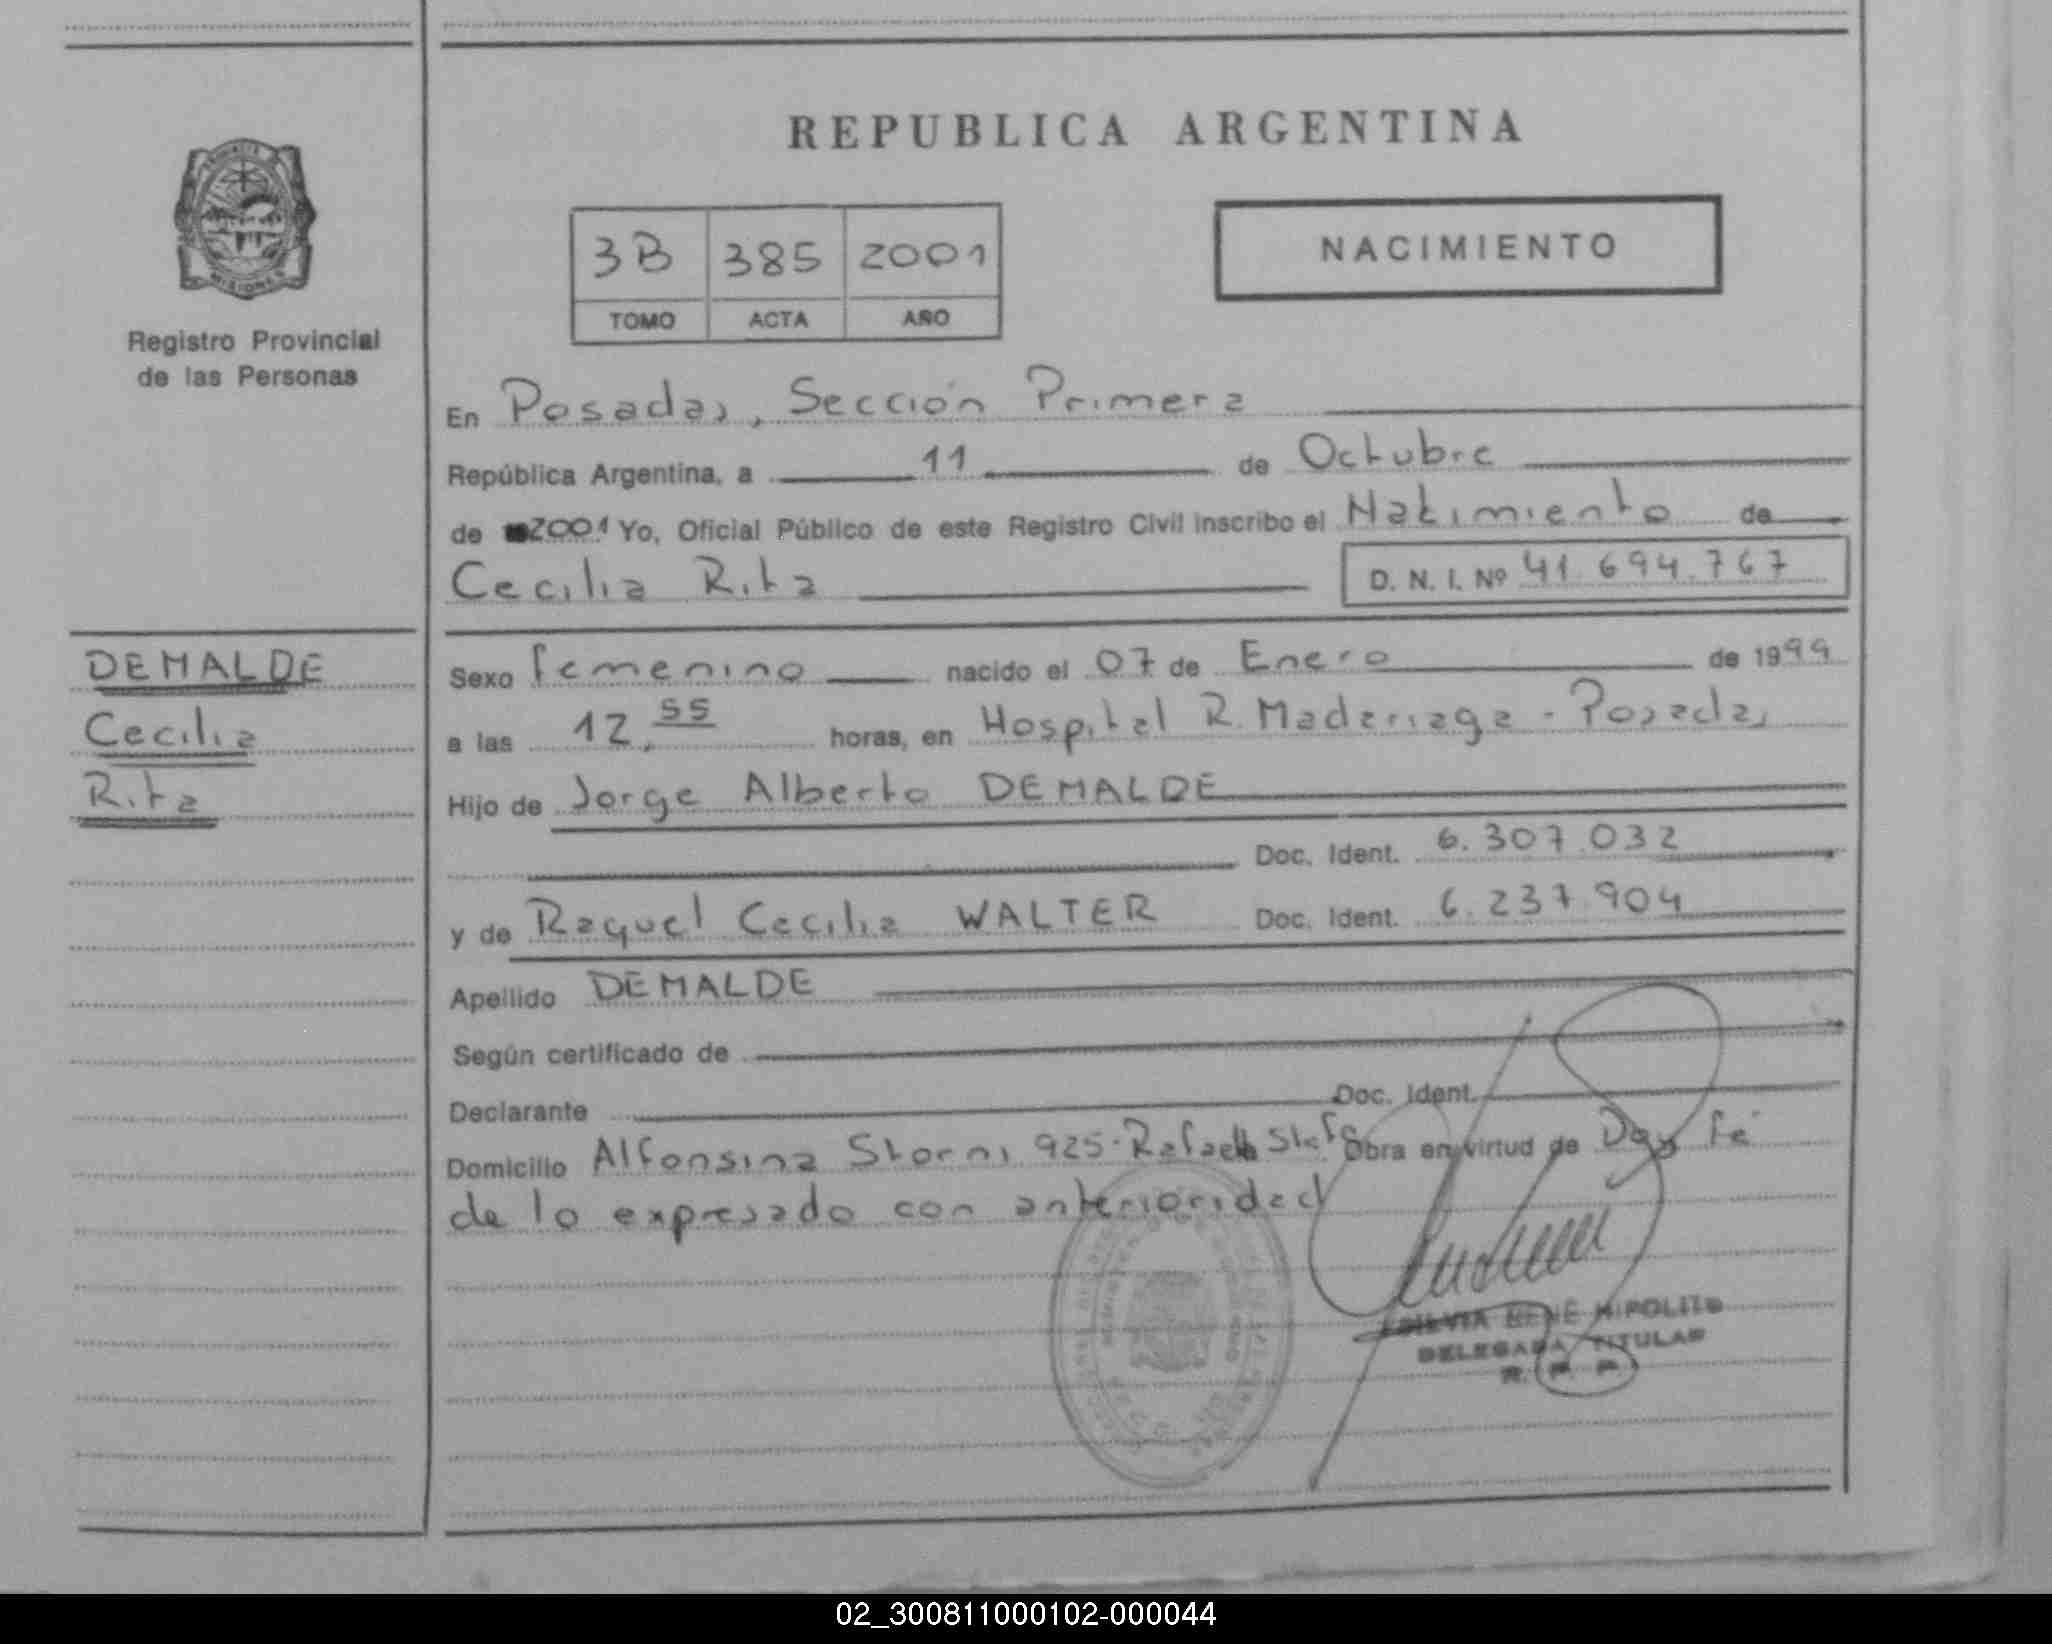 REPUBLICA ARGENTINA
3B 385 2001
TOMO ACTA AÑO
NACIMIENTO
Registro Provincial
de las Personas
En Posadas, Sección Primera
República Argentina, a 11 de Octubre
de 2001 Yo, Oficial Público de este Registro Civil inscribo el Nacimiento de
Cecilia Rita D. N. I. Nº 41.694.767
DEMALDE
Cecilia
Rita
Sexo femenino nacido el 07 de Enero de 1999
a las 12,55 horas, en Hospital R. Madariaga - Posadas
Hijo de Jorge Alberto DEMALDE
Doc. Ident. 6.307.032
y de Raquel Cecilia WALTER Doc. Ident. 6.237.904
Apellido DEMALDE
Según certificado de
Declarante Doc. Ident.
Domicilio Alfonsina Storni 925-Rafaela Sta Fe Obra en virtud de Doy fé
de lo expresado con anterioridad
SILVIA RENÉ HIPOLITO
DELEGADA TITULAR
R. P. P.
02_300811000102-000044